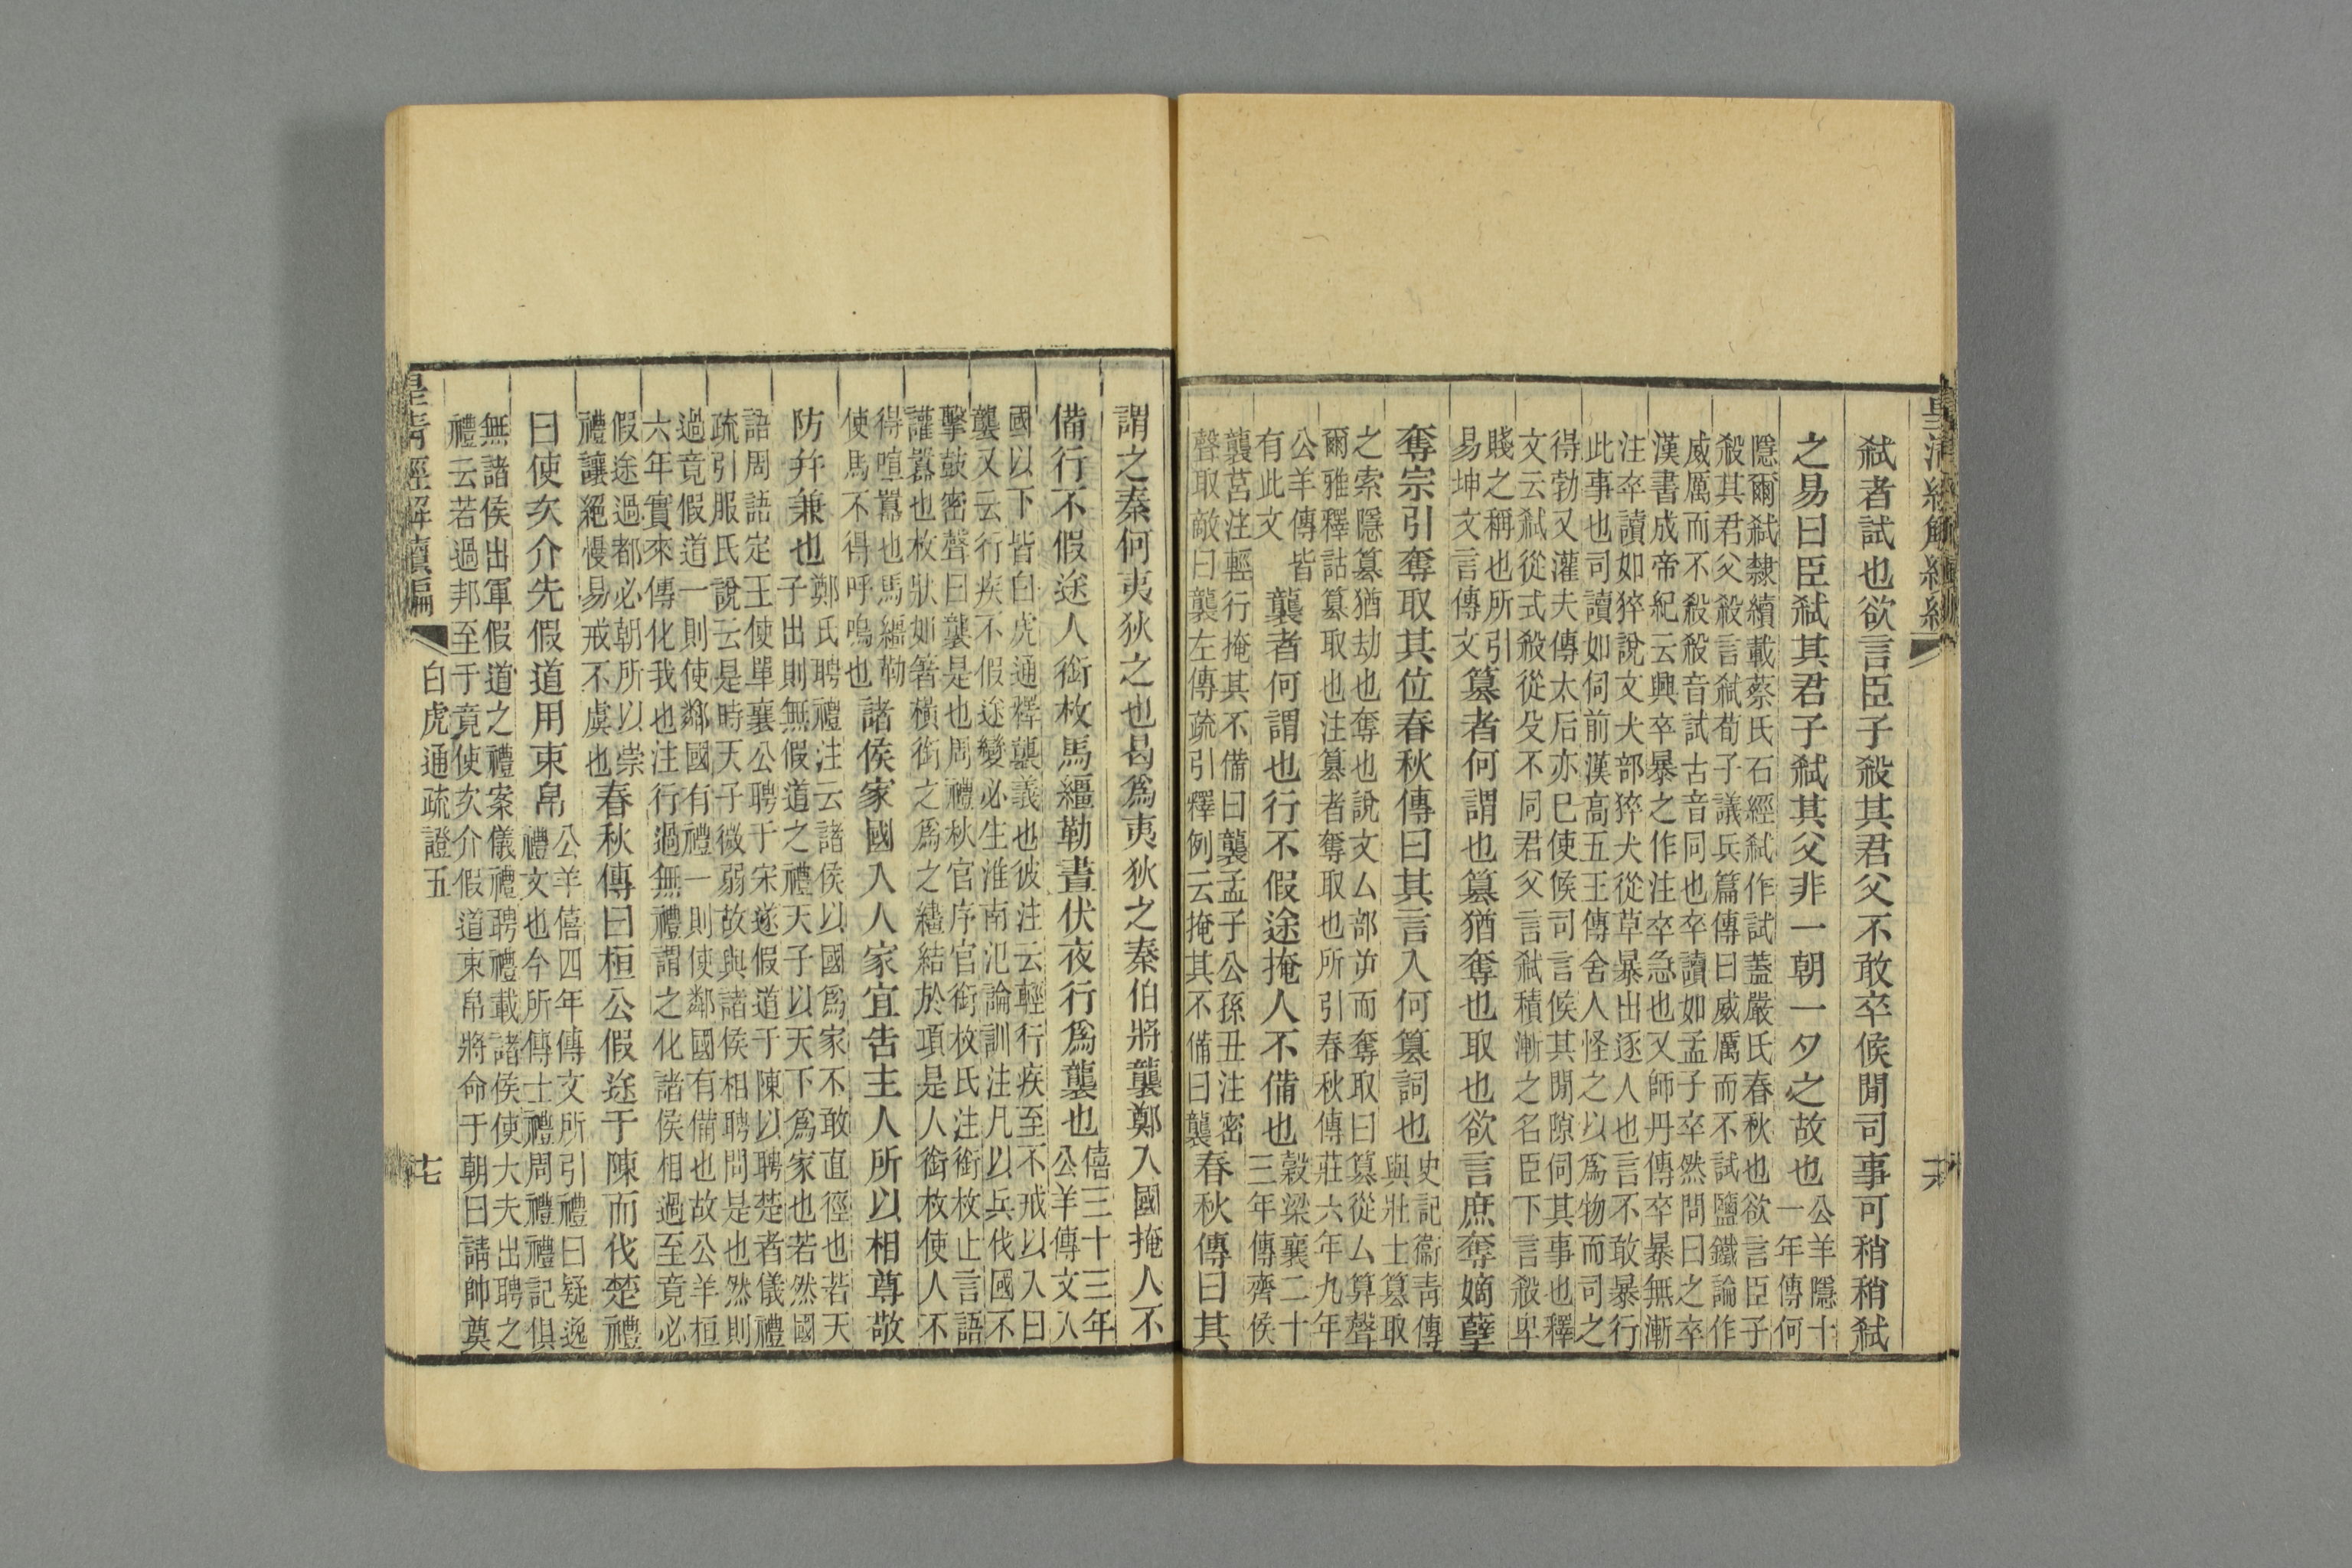 皇清經解續編
十六
弑者試也欲言臣子殺其君父不敢卒候閒司事可稍稍弑
之易曰臣弑其君子弑其父非一朝一夕之故也
公羊隱十
一年傳何
隱爾弑隸續載蔡氏石經弑作試蓋嚴氏春秋也欲言臣子
殺其君父殺言弑荀子議兵篇傳曰威厲而不試鹽鐵論作
威厲而不殺殺音試古音同也卒讀如孟子卒然問曰之卒
漢書成帝紀云興卒暴之作注卒急也又師丹傳卒暴無漸
注卒讀如猝說文犬部猝犬從草暴出逐人也言不敢暴行
此事也司讀如伺前漢高五王傳舍人怪之以爲物而司之
得勃又灌夫傳太后亦已使候司言候其閒隙伺其事也釋
文云弑從式殺從殳不同君父言弑積漸之名臣下言殺卑
賤之稱也所引
易坤文言傳文
篡者何謂也篡猶奪也取也欲言庶奪嫡孽
奪宗引奪取其位春秋傳曰其言入何篡詞也
史記衞靑傳
與壯士篡取
之索隱篡猶劫也奪也說文厶部屰而奪取曰篡從厶算聲
爾雅釋詁篡取也注篡者奪取也所引春秋傳莊六年九年
公羊傳皆
有此文
襲者何謂也行不假途掩人不備也
穀梁襄二十
三年傳齊侯
襲莒注輕行掩其不備曰襲孟子公孫丑注密
聲取敵曰襲左傳疏引釋例云掩其不備曰襲
春秋傳曰其
謂之秦何夷狄之也曷爲夷狄之秦伯將襲鄭入國掩人不
備行不假途人銜枚馬繮勒晝伏夜行爲襲也
僖三十三年
公羊傳文入
國以下皆白虎通釋襲義也彼注云輕行疾至不戒以入曰
襲又云行疾不假途變必生淮南氾論訓注凡以兵伐國不
擊鼓密聲曰襲是也周禮秋官序官銜枚氏注銜枚止言語
讙囂也枚狀如箸橫銜之爲之繣結於項是人銜枚使人不
得喧囂也馬繮勒
使馬不得呼鳴也
諸侯家國入人家宜告主人所以相尊敬
防幷兼也
鄭氏聘禮注云諸侯以國爲家不敢直徑也若天
子出則無假道之禮天子以天下爲家也若然國
語周語定王使單襄公聘于宋遂假道于陳以聘楚者儀禮
疏引服氏說云是時天子微弱故與諸侯相聘問是也然則
過竟假道一則使鄰國有禮一則使鄰國有備也故公羊桓
六年實來傳化我也注行過無禮謂之化諸侯相過至竟必
假途過都必朝所以崇
禮讓絕慢易戒不虞也
春秋傳曰桓公假途于陳而伐楚禮
曰使次介先假道用束帛
公羊僖四年傳文所引禮曰疑逸
禮文也今所傳士禮周禮禮記俱
無諸侯出軍假道之禮案儀禮聘禮載諸侯使大夫出聘之
禮云若過邦至于竟使次介假道束帛將命于朝曰請帥奠
皇清經解續編
白虎通疏證五
十七